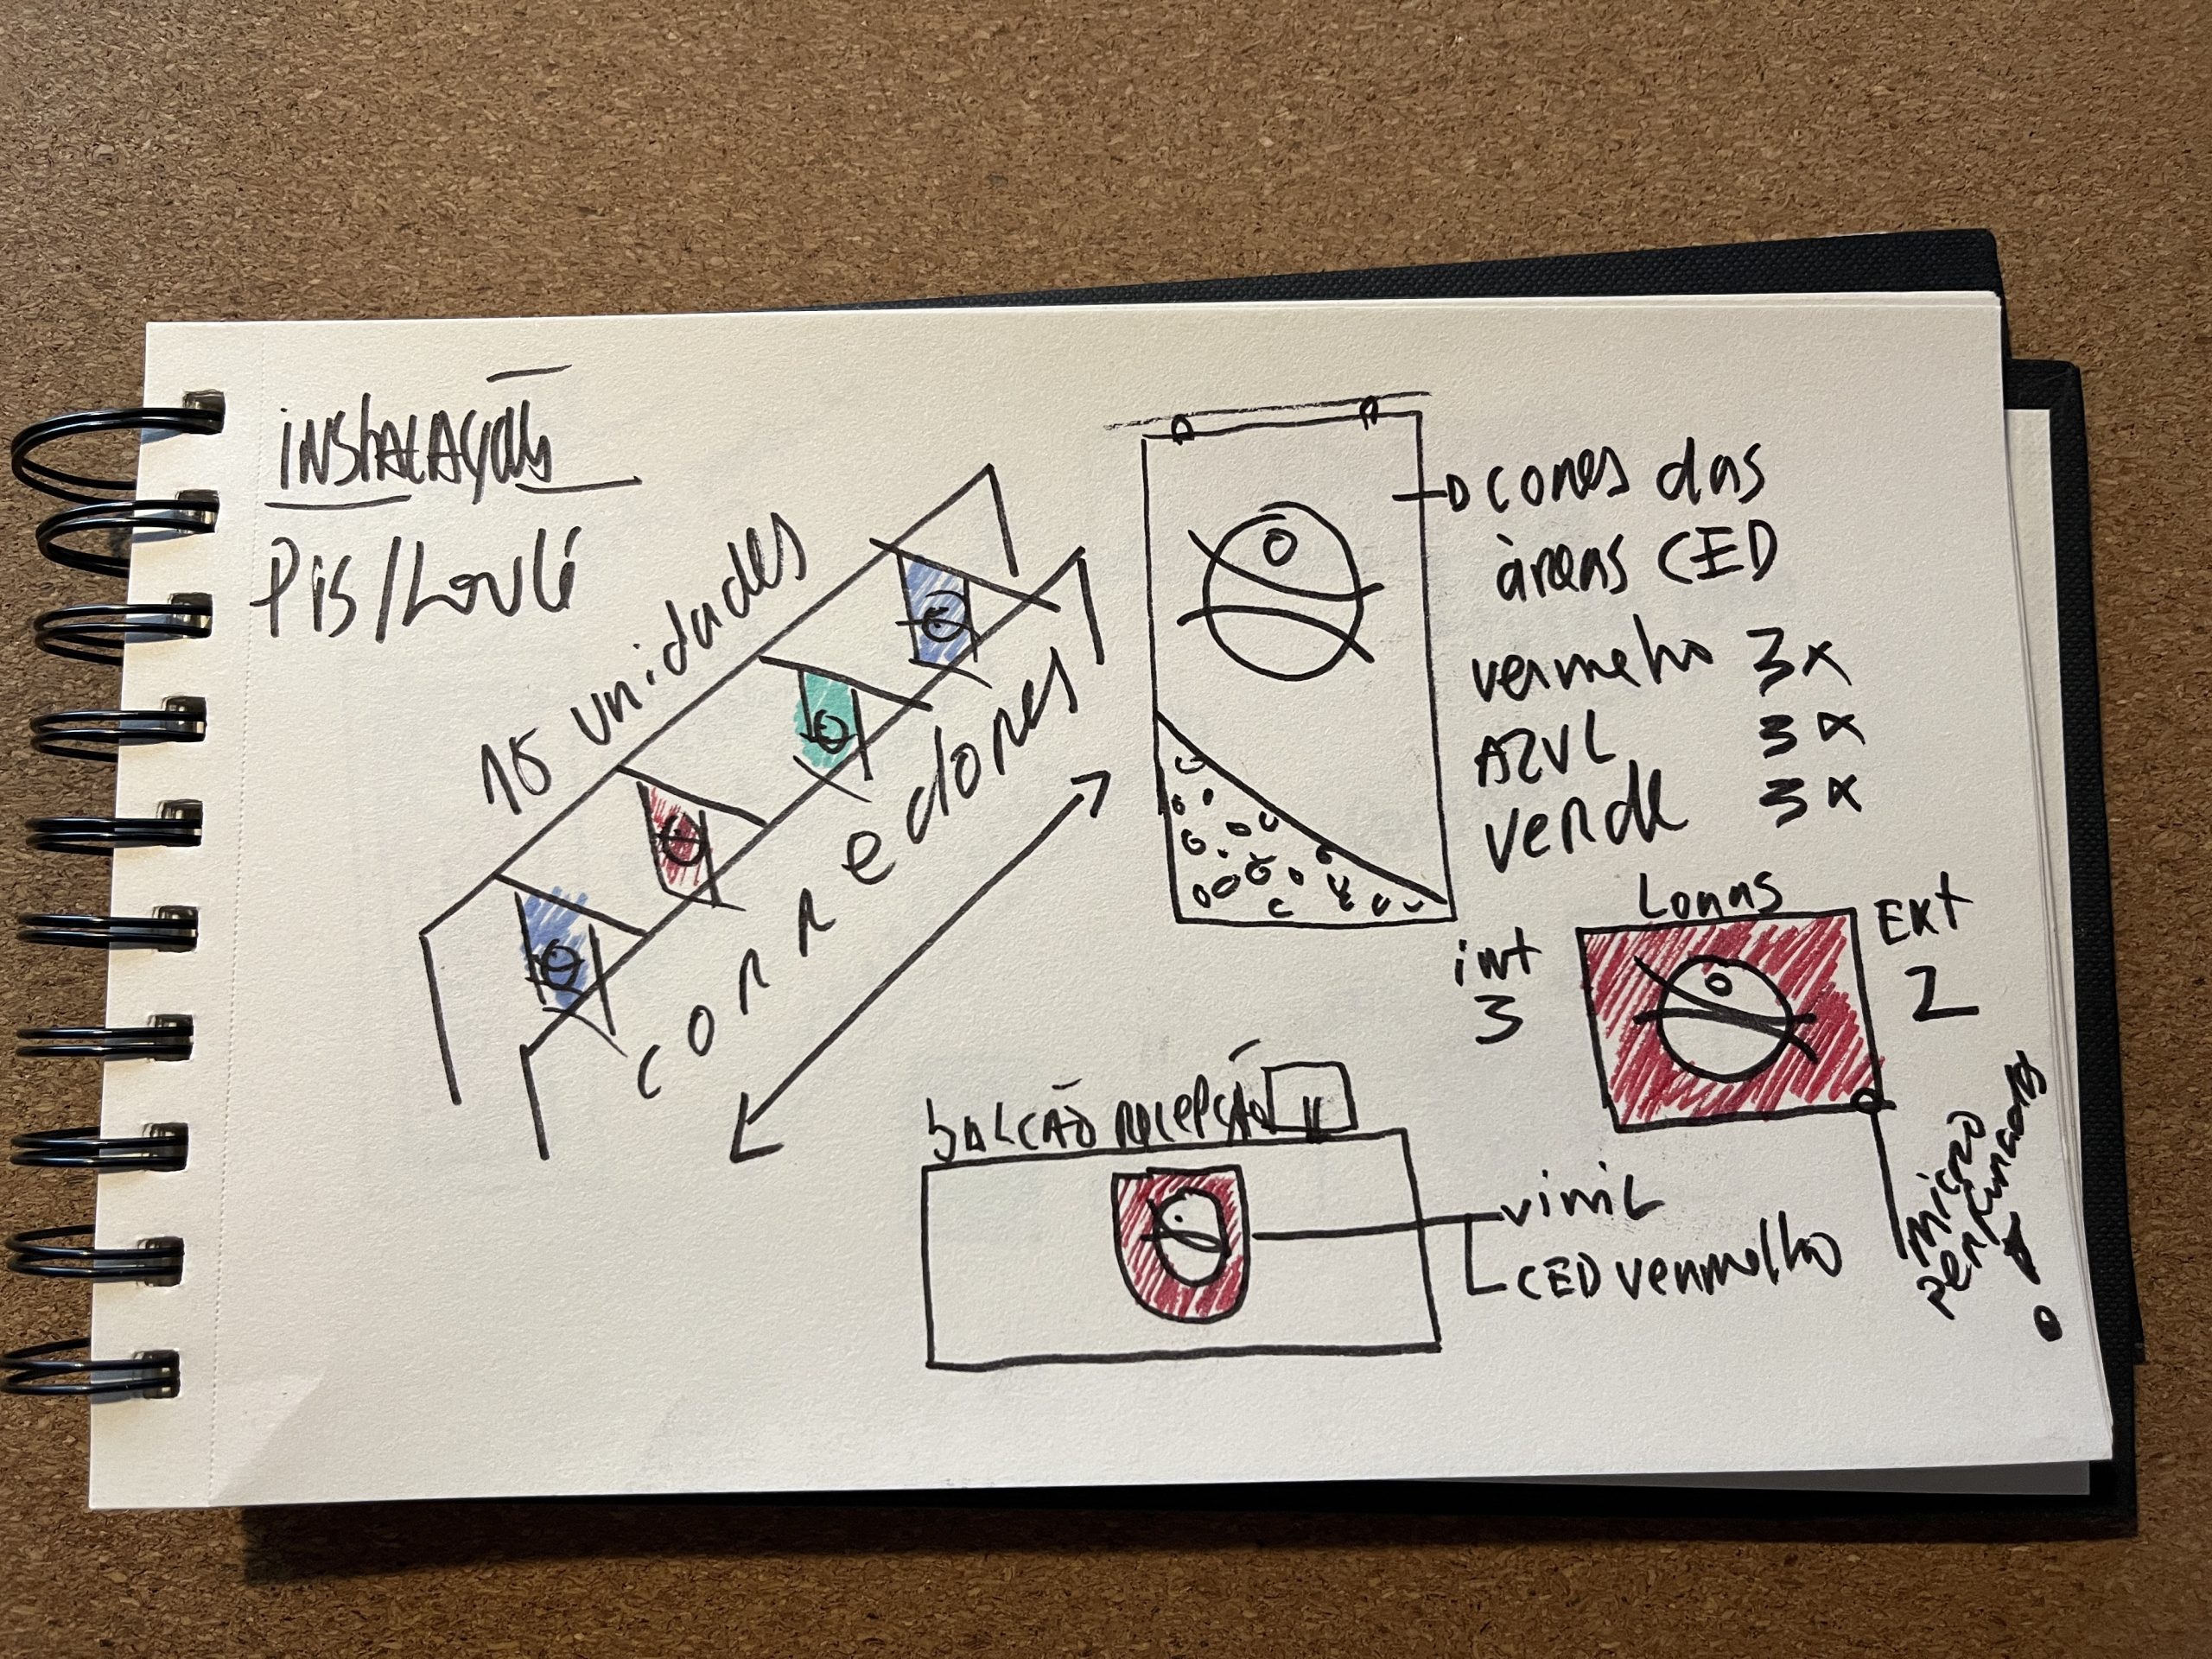 instalação
Pis/Loulé
15 unidades
corredores
cores das
áreas CED
vermelho 3x
AZUL 3x
verde 3x
Lonas
int
3
Ext
2
micro
perfurado
!
balcão recepção
vinil
CED vermelho